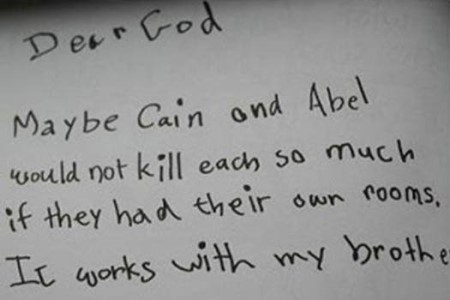 Dear God
Maybe Cain and Abel
would not kill each so much
if they had their own rooms.
It works with my brothe